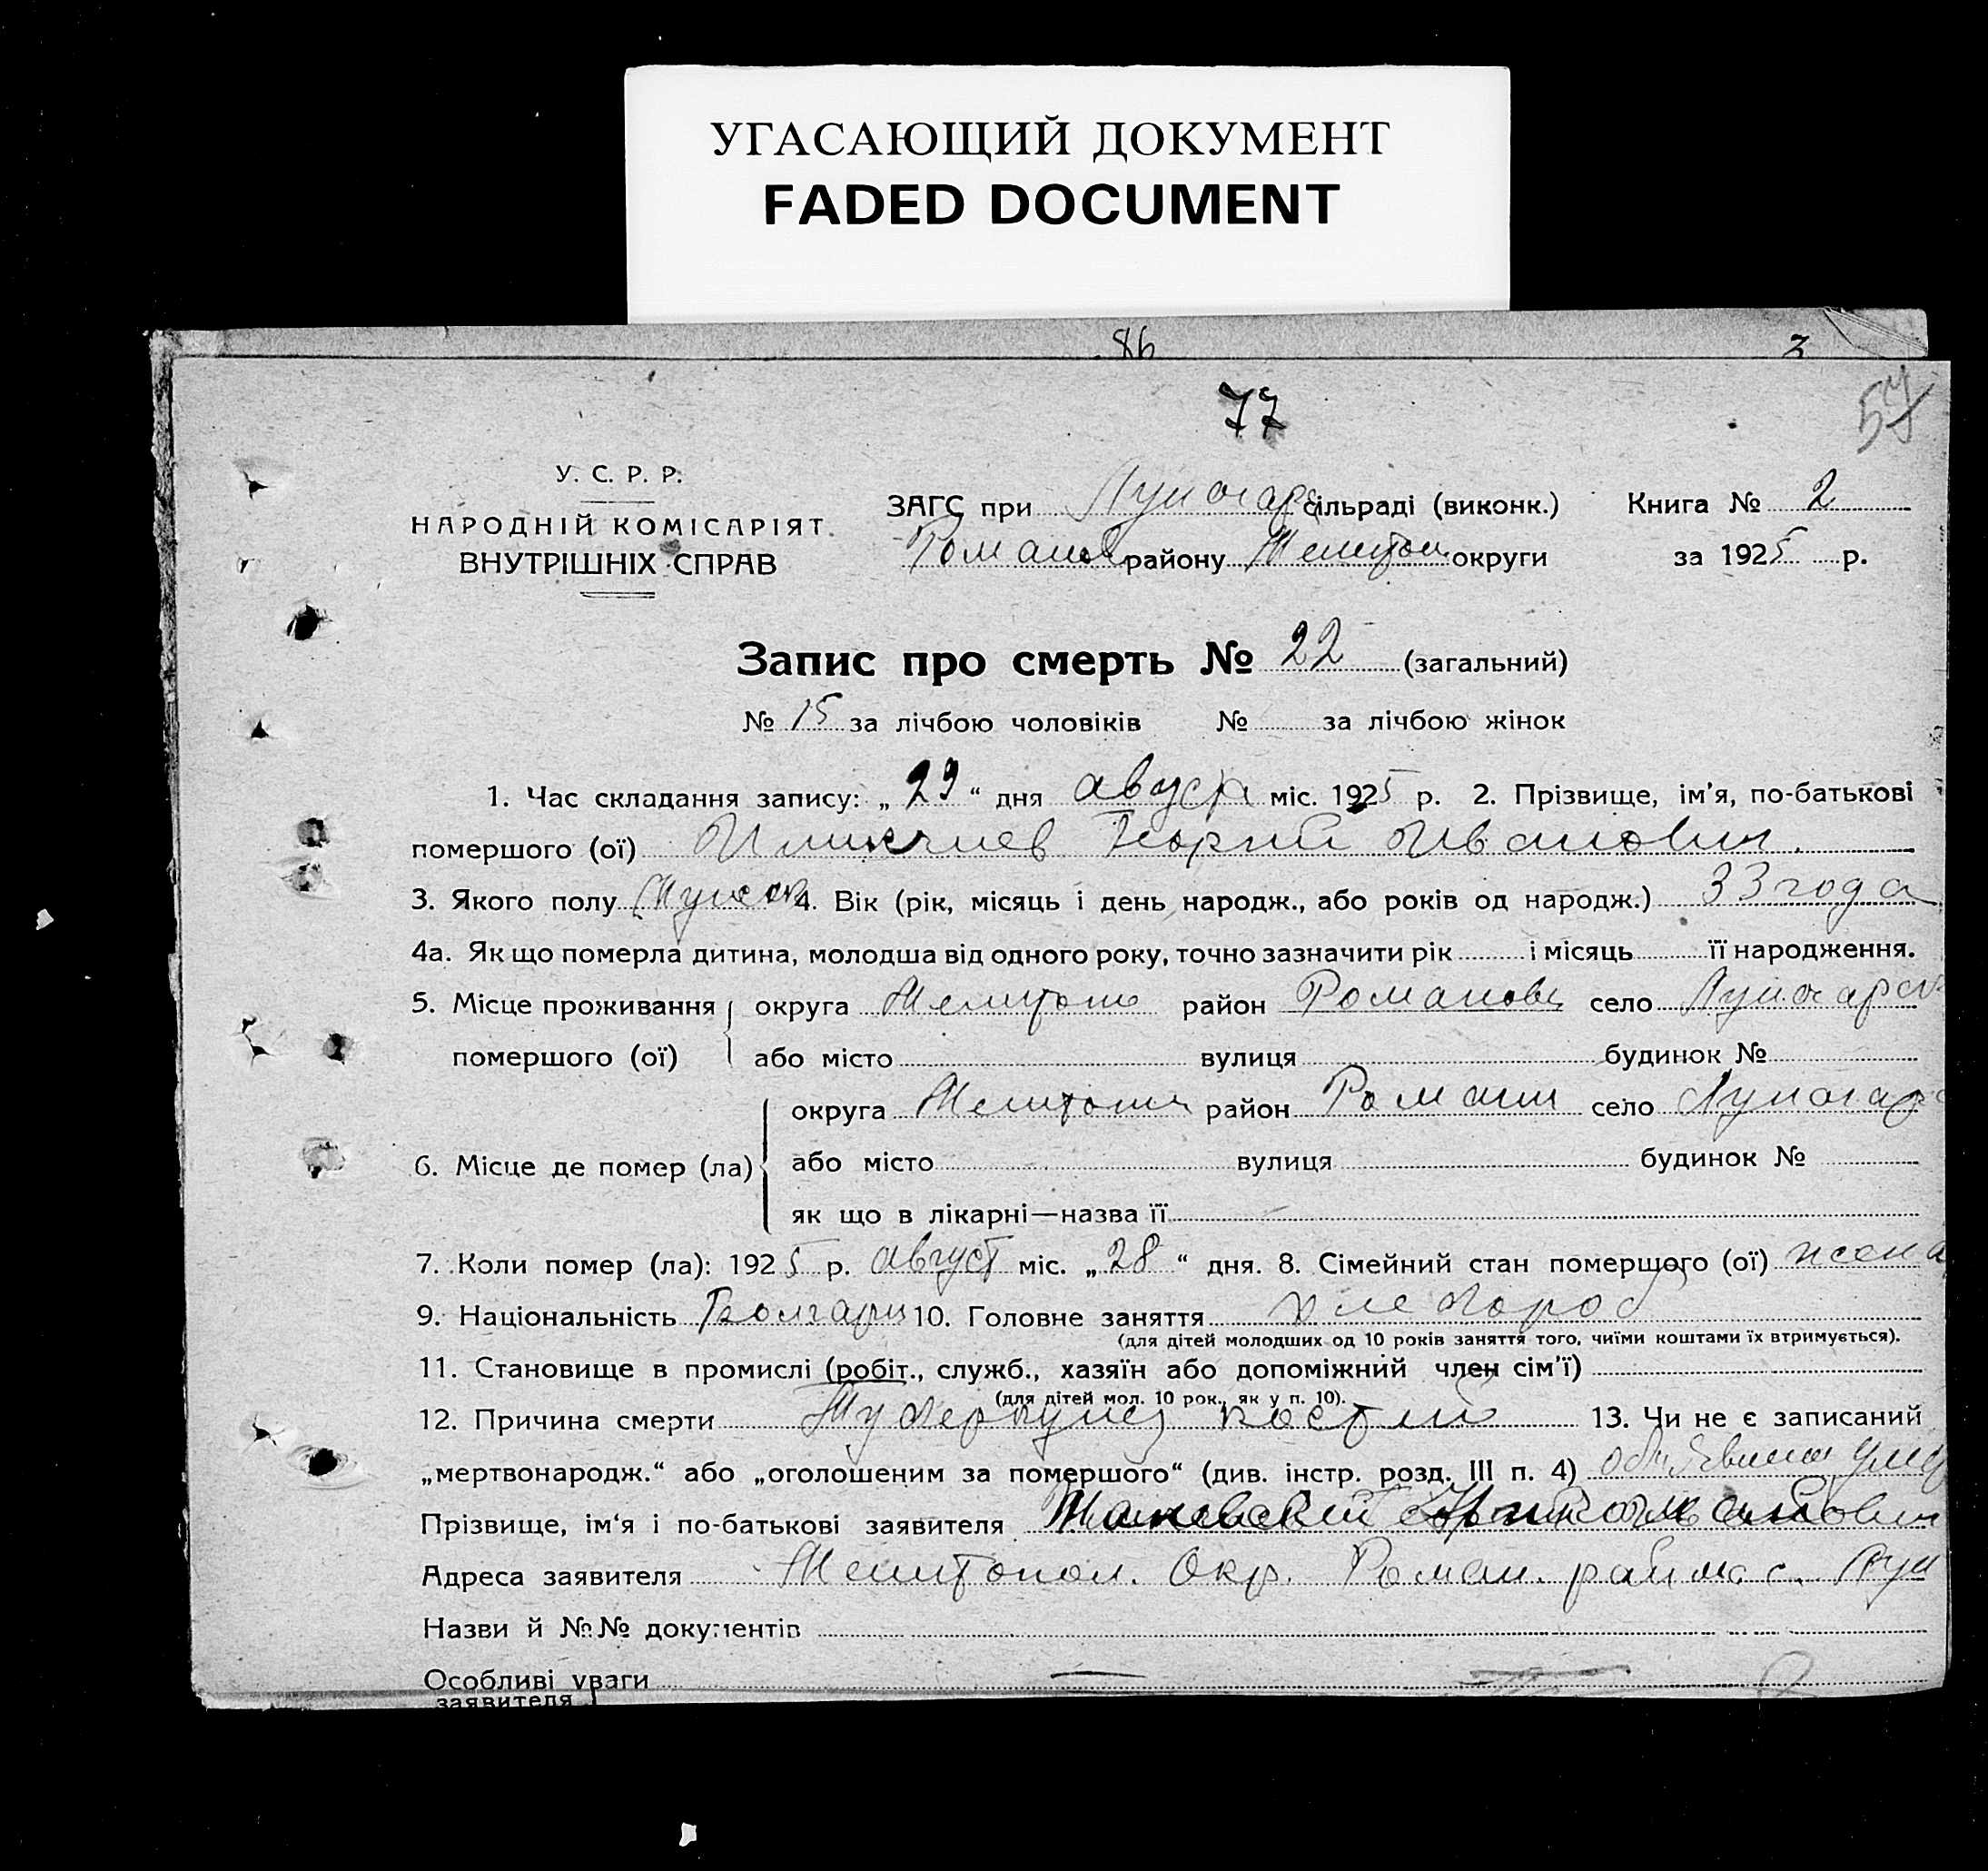 УГАСАЮЩИЙ ДОКУМЕНТ
FADED DOCUMENT
86
3
77
57
У. С. Р. Р.
НАРОДНІЙ КОМІСАРІЯТ
ВНУТРІШНІХ СПРАВ
ЗАГС при Луначар сільраді (виконк.) Книга № 2
Романов району Мелитоп округи за 1925 р.
Запис про смерть № 22 (загальний)
№ 15 за лічбою чоловіків № за лічбою жінок
1. Час складання запису: „29“ дня август міс. 1925 р. 2. Прізвище, ім'я, по-батькові
помершого (ої) Георгий Иванович.
3. Якого полу Мужск 4. Вік (рік, місяць і день народж., або років од народж.) 33 года
4а. Як що померла дитина, молодша від одного року, точно зазначити рік і місяць її народження.
5. Місце проживання округа Мелитопо район Романовс село Луначарск
помершого (ої) або місто вулиця будинок №
округа Мелитопол район Роман село Луначарс
6. Місце де помер (ла) або місто вулиця будинок №
як що в лікарні—назва її
7. Коли помер (ла): 1925 р. август міс. „28“ дня. 8. Сімейний стан помершого (ої) жена
9. Національність Болгарин 10. Головне заняття хлебороб
(для дітей молодших од 10 років заняття того, чиїми коштами їх втримується).
11. Становище в промислі (робіт., служб., хазяїн або допоміжний член сім'ї)
(для дітей мол. 10 рок., як у п. 10).
12. Причина смерти Туберкулез костей 13. Чи не є записаний
„мертвонародж.“ або „оголошеним за помершого“ (див. інстр. розд. III п. 4)
Прізвище, ім'я і по-батькові заявителя
Адреса заявителя Мелитопол. Окр. Роман. района с. Лун
Назви й №№ документів
Особливі уваги
заявителя